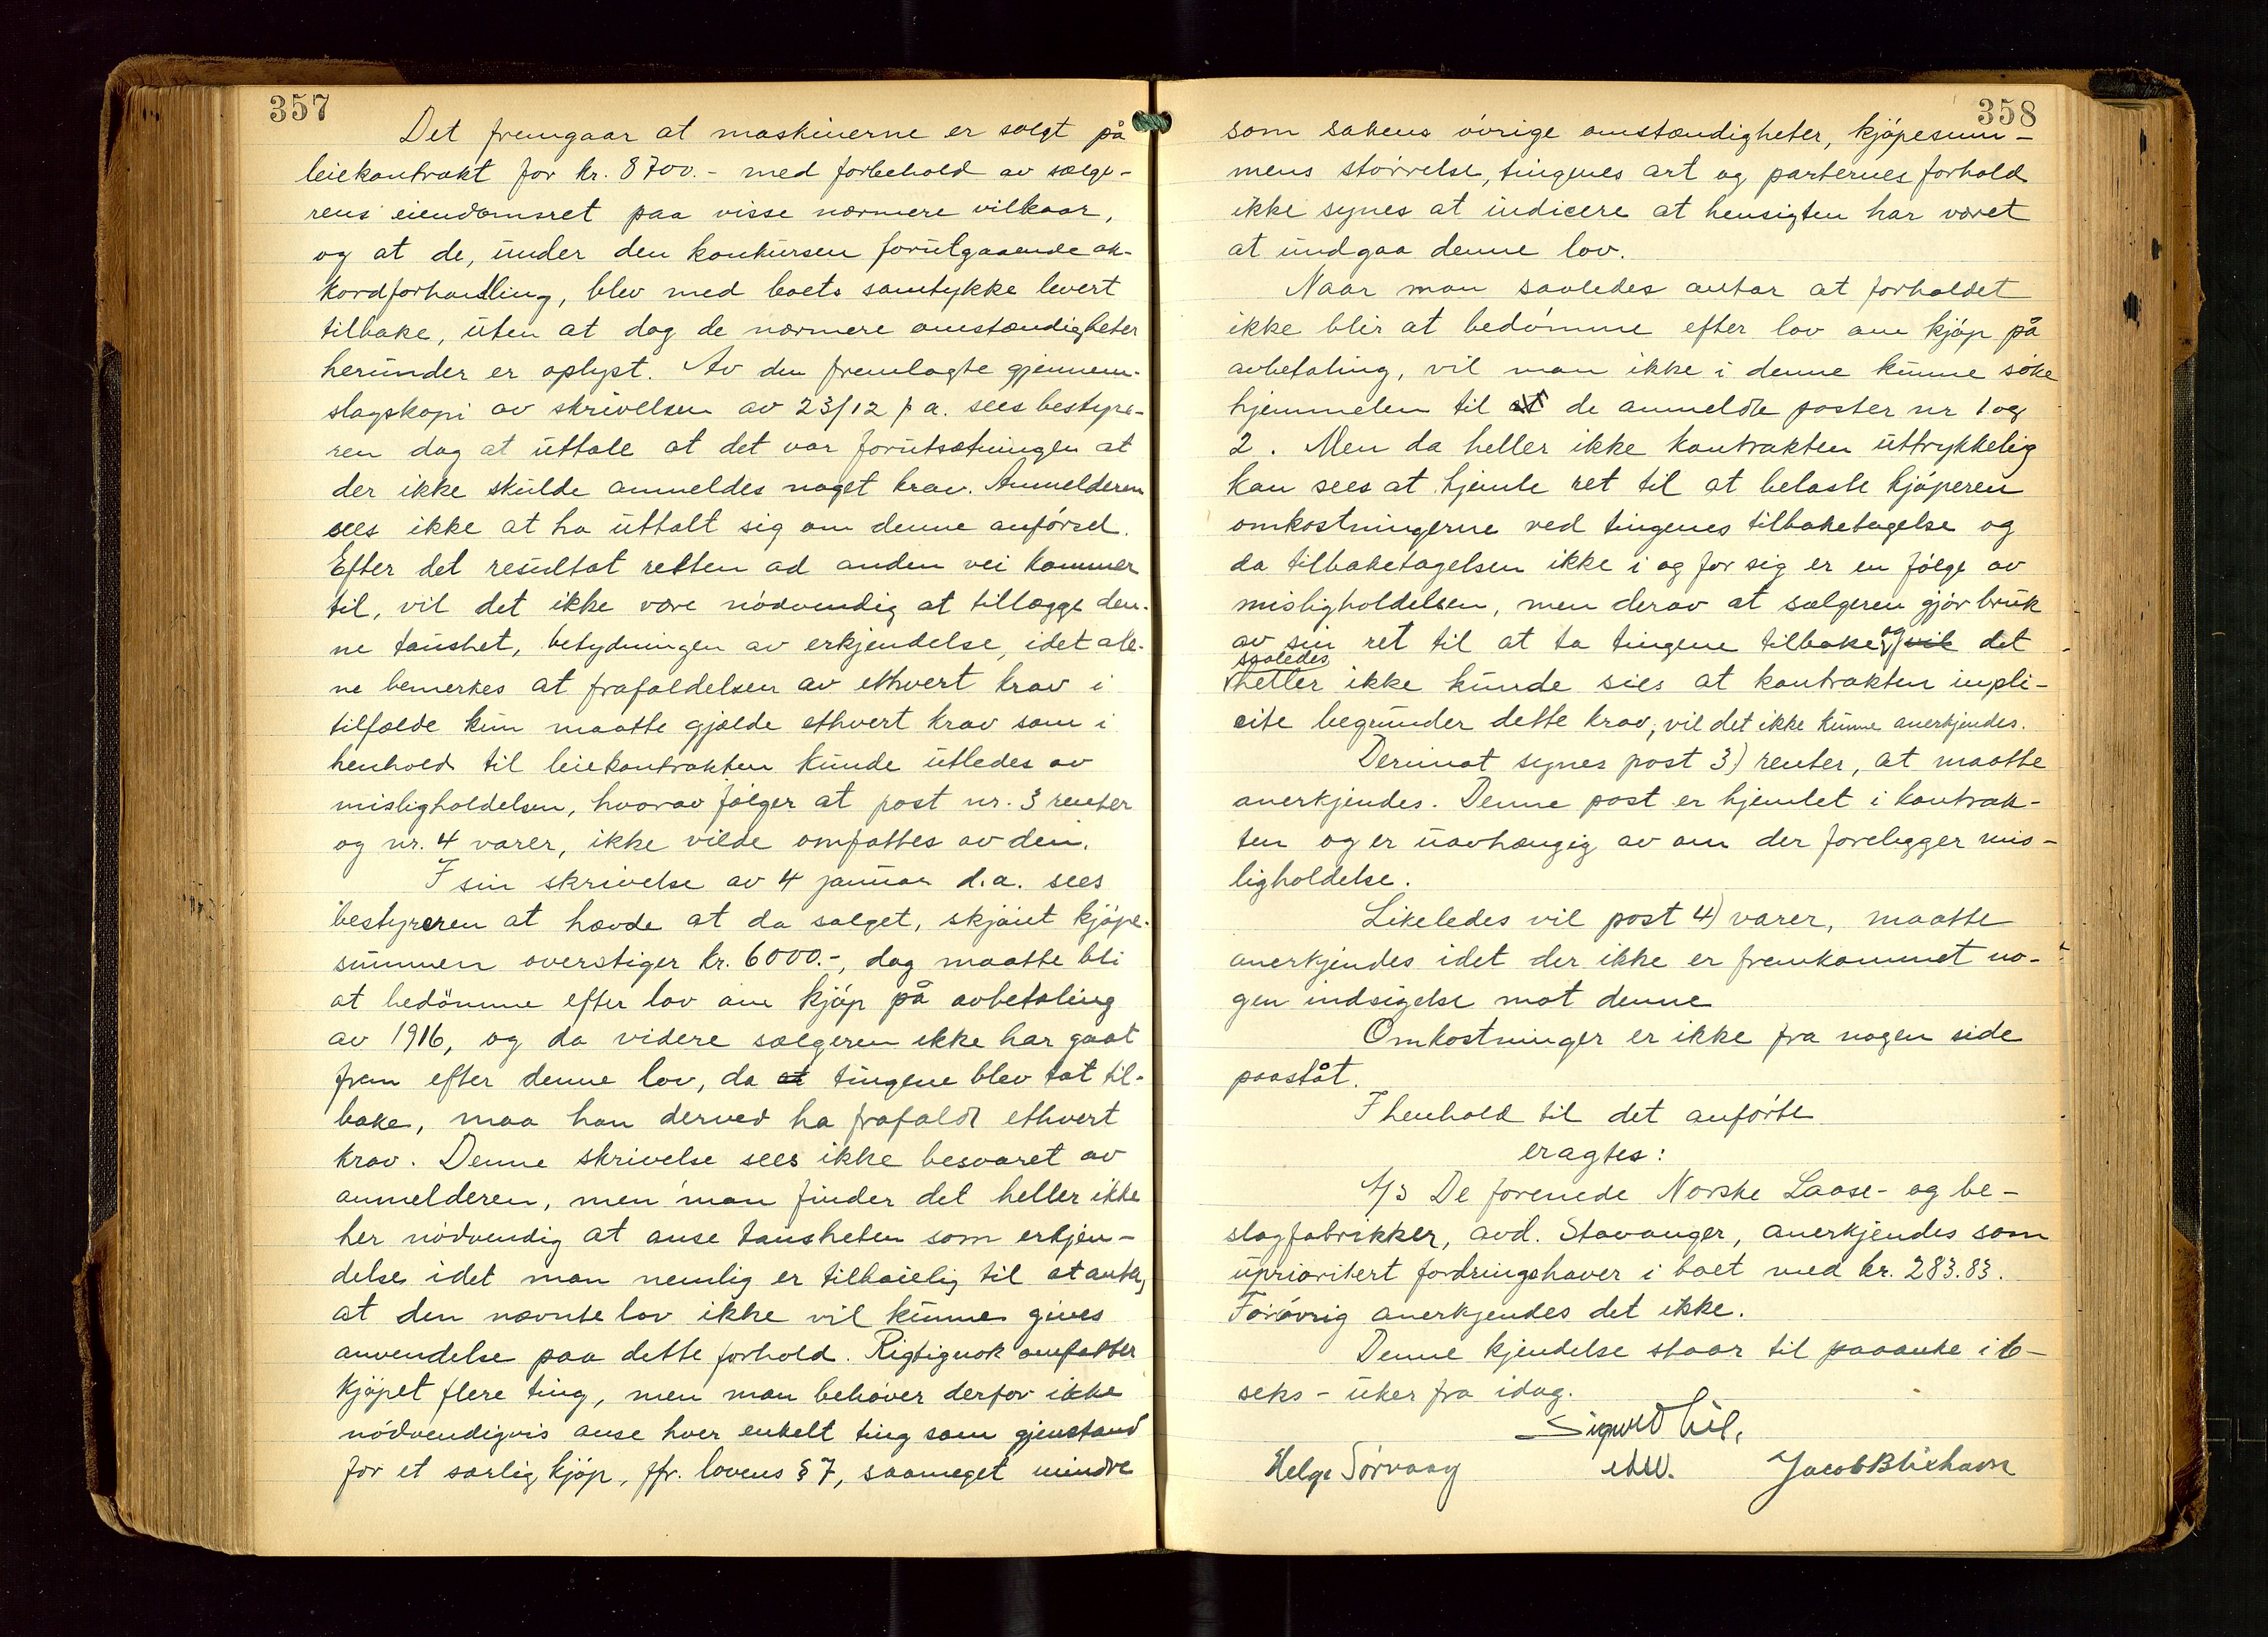 357
Det fremgaar at maskinerne er solgt på
leiekontrakt for kr. 8700.- med forbehold av sælge-
rens eiendomsret paa visse nærmere vilkaar,
og at de, under den konkursen forutgaaende ak-
kordforhandling, blev med boets samtykke levert
tilbake, uten at dog de nærmere omstændigheter
herunder er oplyst. Av den fremlagte gjennem-
slagskopi av skrivelsen av 23/12 f a. sees bestyre-
ren dog at uttale at det var forutsætningen at
der ikke skulde anmeldes noget krav. Anmelderen
sees ikke at ha uttalt sig om denne anførsel.
Efter det resultat retten ad anden vei kommer
til, vil det ikke være nödvendig at tillægge den-
ne taushet, betydningen av erkjendelse, idet ale-
ne bemerkes at frafaldelsen av ethvert krav i
tilfælde kun maatte gjælde ethvert krav som i
henhold til leiekontrakten kunde utledes av
misligholdelsen, hvorav følger at post nr. 3 renter
og nr. 4 varer, ikke vilde omfattes av den.
I sin skrivelse av 4 januar d.a. sees
bestyreren at hævde at da salget, skjøiet kjøpe-
summen overstiger kr. 6000.-, dog maatte bli
at bedömme efter lov om kjøp på avbetaling
av 1916, og da videre sælgeren ikke har gaat
frem efter denne lov, da at tingene blev tat til-
bake, maa han derved ha frafaldt ethvert
krav. Denne skrivelse sees ikke besvaret av
anmelderen, men man finder det heller ikke
her nödvendig at anse tausheten som erkjen-
delse idet man nemlig er tilbøielig til at anta,
at den nævnte lov ikke vil kunne gives
anvendelse paa dette forhold. Rigtignok omfatter
kjøpet flere ting, men man behøver derfor ikke
nödvendigvis anse hver enkelt ting som gjenstand
for et særlig kjøp, jfr. lovens § 7, saameget mindre
358
som sakens øvrige omstændigheter, kjøpesum-
mens størrelse, tingenes art og parternes forhold
ikke synes at indicere at hensigten har været
at undgaa denne lov.
Naar man saaledes antar at forholdet
ikke blir at bedømme efter lov om kjøp på
avbetaling, vil man ikke i denne kunne søke
hjemmelen til at de anmeldte poster nr 1 og
2. Men da heller ikke kontrakten uttrykkelig
kan sees at hjemle ret til at belaste kjøperen
omkostningerne ved tingenes tilbaketagelse og
da tilbaketagelsen ikke i og for sig er en følge av
misligholdelsen, men derav at sælgeren gjør bruk
av sin ret til at ta tingene tilbake, og vil det
saaledes
heller ikke kunde sies at kontrakten impli-
cite begrunder dette krav, vil det ikke kunne anerkjendes.
Derimot synes post 3) renter, at maatte
anerkjendes. Denne post er hjemlet i kontrak-
ten og er uavhængig av om der foreligger mis-
ligholdelse.
Likeledes vil post 4) varer, maatte
anerkjendes idet der ikke er fremkommet no-
gen indsigelse mot denne
Omkostninger er ikke fra nogen side
paaståt.
I henhold til det anførte
eragtes:
A/S De forenede Norske Laase- og be-
slagfabrikker, avd. Stavanger, anerkjendes som
uprioritert fordringshaver i boet med kr. 283.83.
Forøvrig anerkjendes det ikke.
Denne kjendelse staar til paaanke i 6-
seks - uker fra idag.
Helge Sørvaag
Jacob Blixhavn